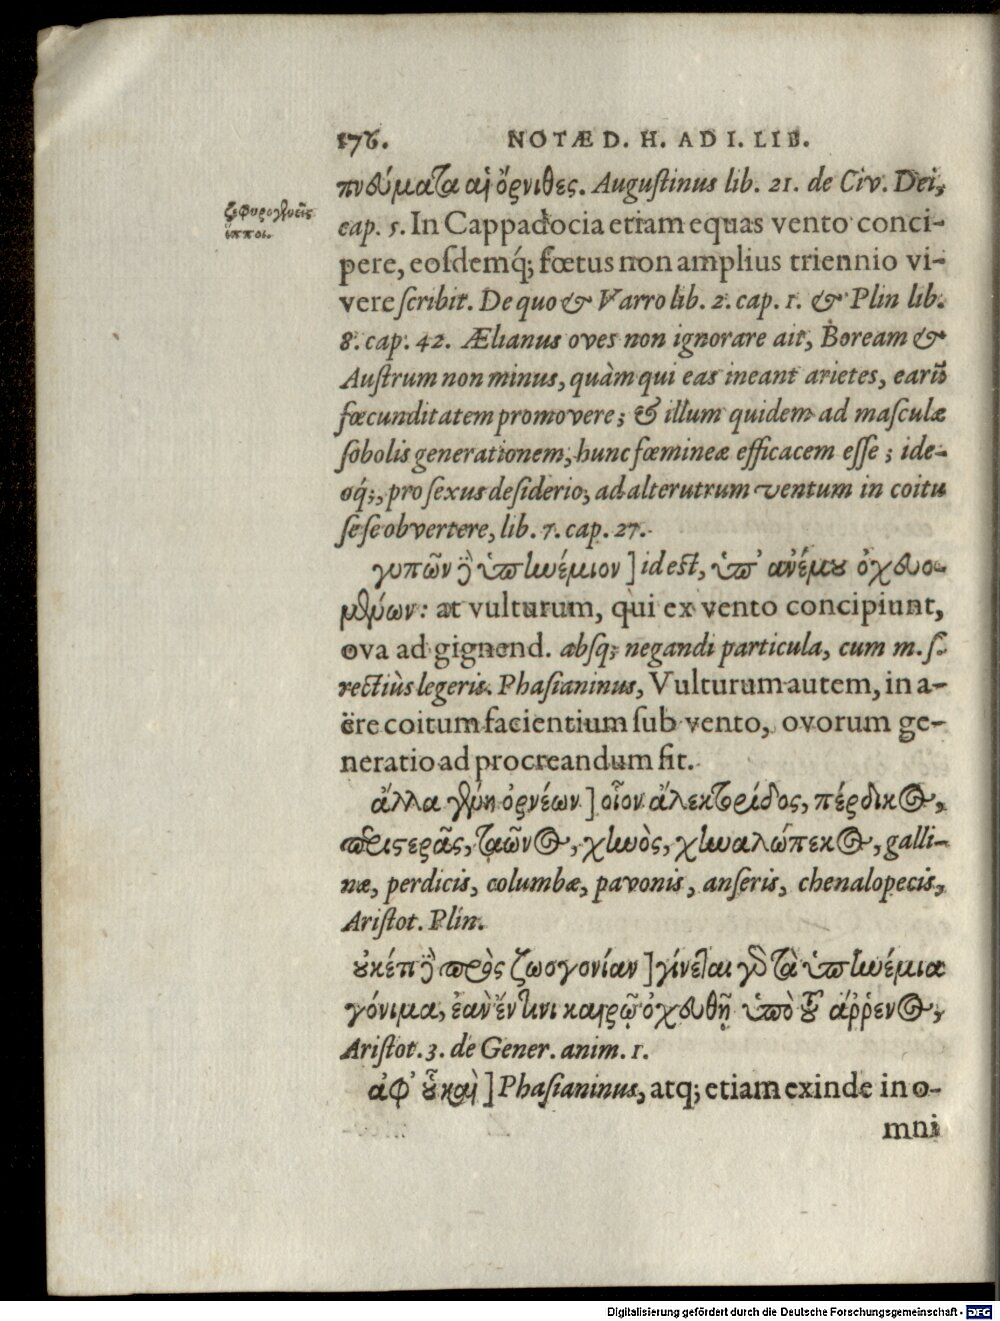 176. NOTÆ D. H. AD I. LIB.
πνεύματα αἱ ὄρνιθες. Augustinus lib. 21. de Civ. Dei,
ζεφυρογενεῖς
ἵπποι.
cap. 5. In Cappadocia etiam equas vento conci-
pere, eosdemq́; fœtus non amplius triennio vi-
vere scribit. De quo & Varro lib. 2. cap. 1. & Plin lib.
8. cap. 42. Ælianus oves non ignorare ait, Boream &
Austrum non minus, quàm qui eas ineant arietes, earũ
fœcunditatem promovere; & illum quidem ad masculæ
sobolis generationem, hunc fœmineæ efficacem esse; ide-
oq́;, pro sexus desiderio, ad alterutrum ventum in coitu
sese obvertere, lib. 7. cap. 27.
γυπῶν ὃ ὑπηνέμιον] id est, ὑπ' ἀνέμου ὀχευο-
μένων: at vulturum, qui ex vento concipiunt,
ova ad gignend. absq; negandi particula, cum m. s.
rectiùs legeris. Phasianinus, Vulturum autem, in a-
ëre coitum facientium sub vento, ovorum ge-
neratio ad procreandum fit.
ἄλλα γένη ὀρνέων] οἷον ἀλεκτορίδος, πέρδικος,
περιστερᾶς, ταῶνος, χηνὸς, χηναλώπεκος, galli-
næ, perdicis, columbæ, pavonis, anseris, chenalopecis,
Aristot. Plin.
οὐκέτι ὃ πρὸς ζωογονίαν] γίνεται γὰρ τὰ ὑπηνέμια
γόνιμα, ἐὰν ἔν τινι καιρῷ ὀχευθῇ ὑπὸ τοῦ ἄῤῥενος,
Aristot. 3. de Gener. anim. 1.
ἀφ' οὗ καὶ] Phasianinus, atq; etiam exinde in o-
mni
Digitalisierung gefördert durch die Deutsche Forschungsgemeinschaft - DFG